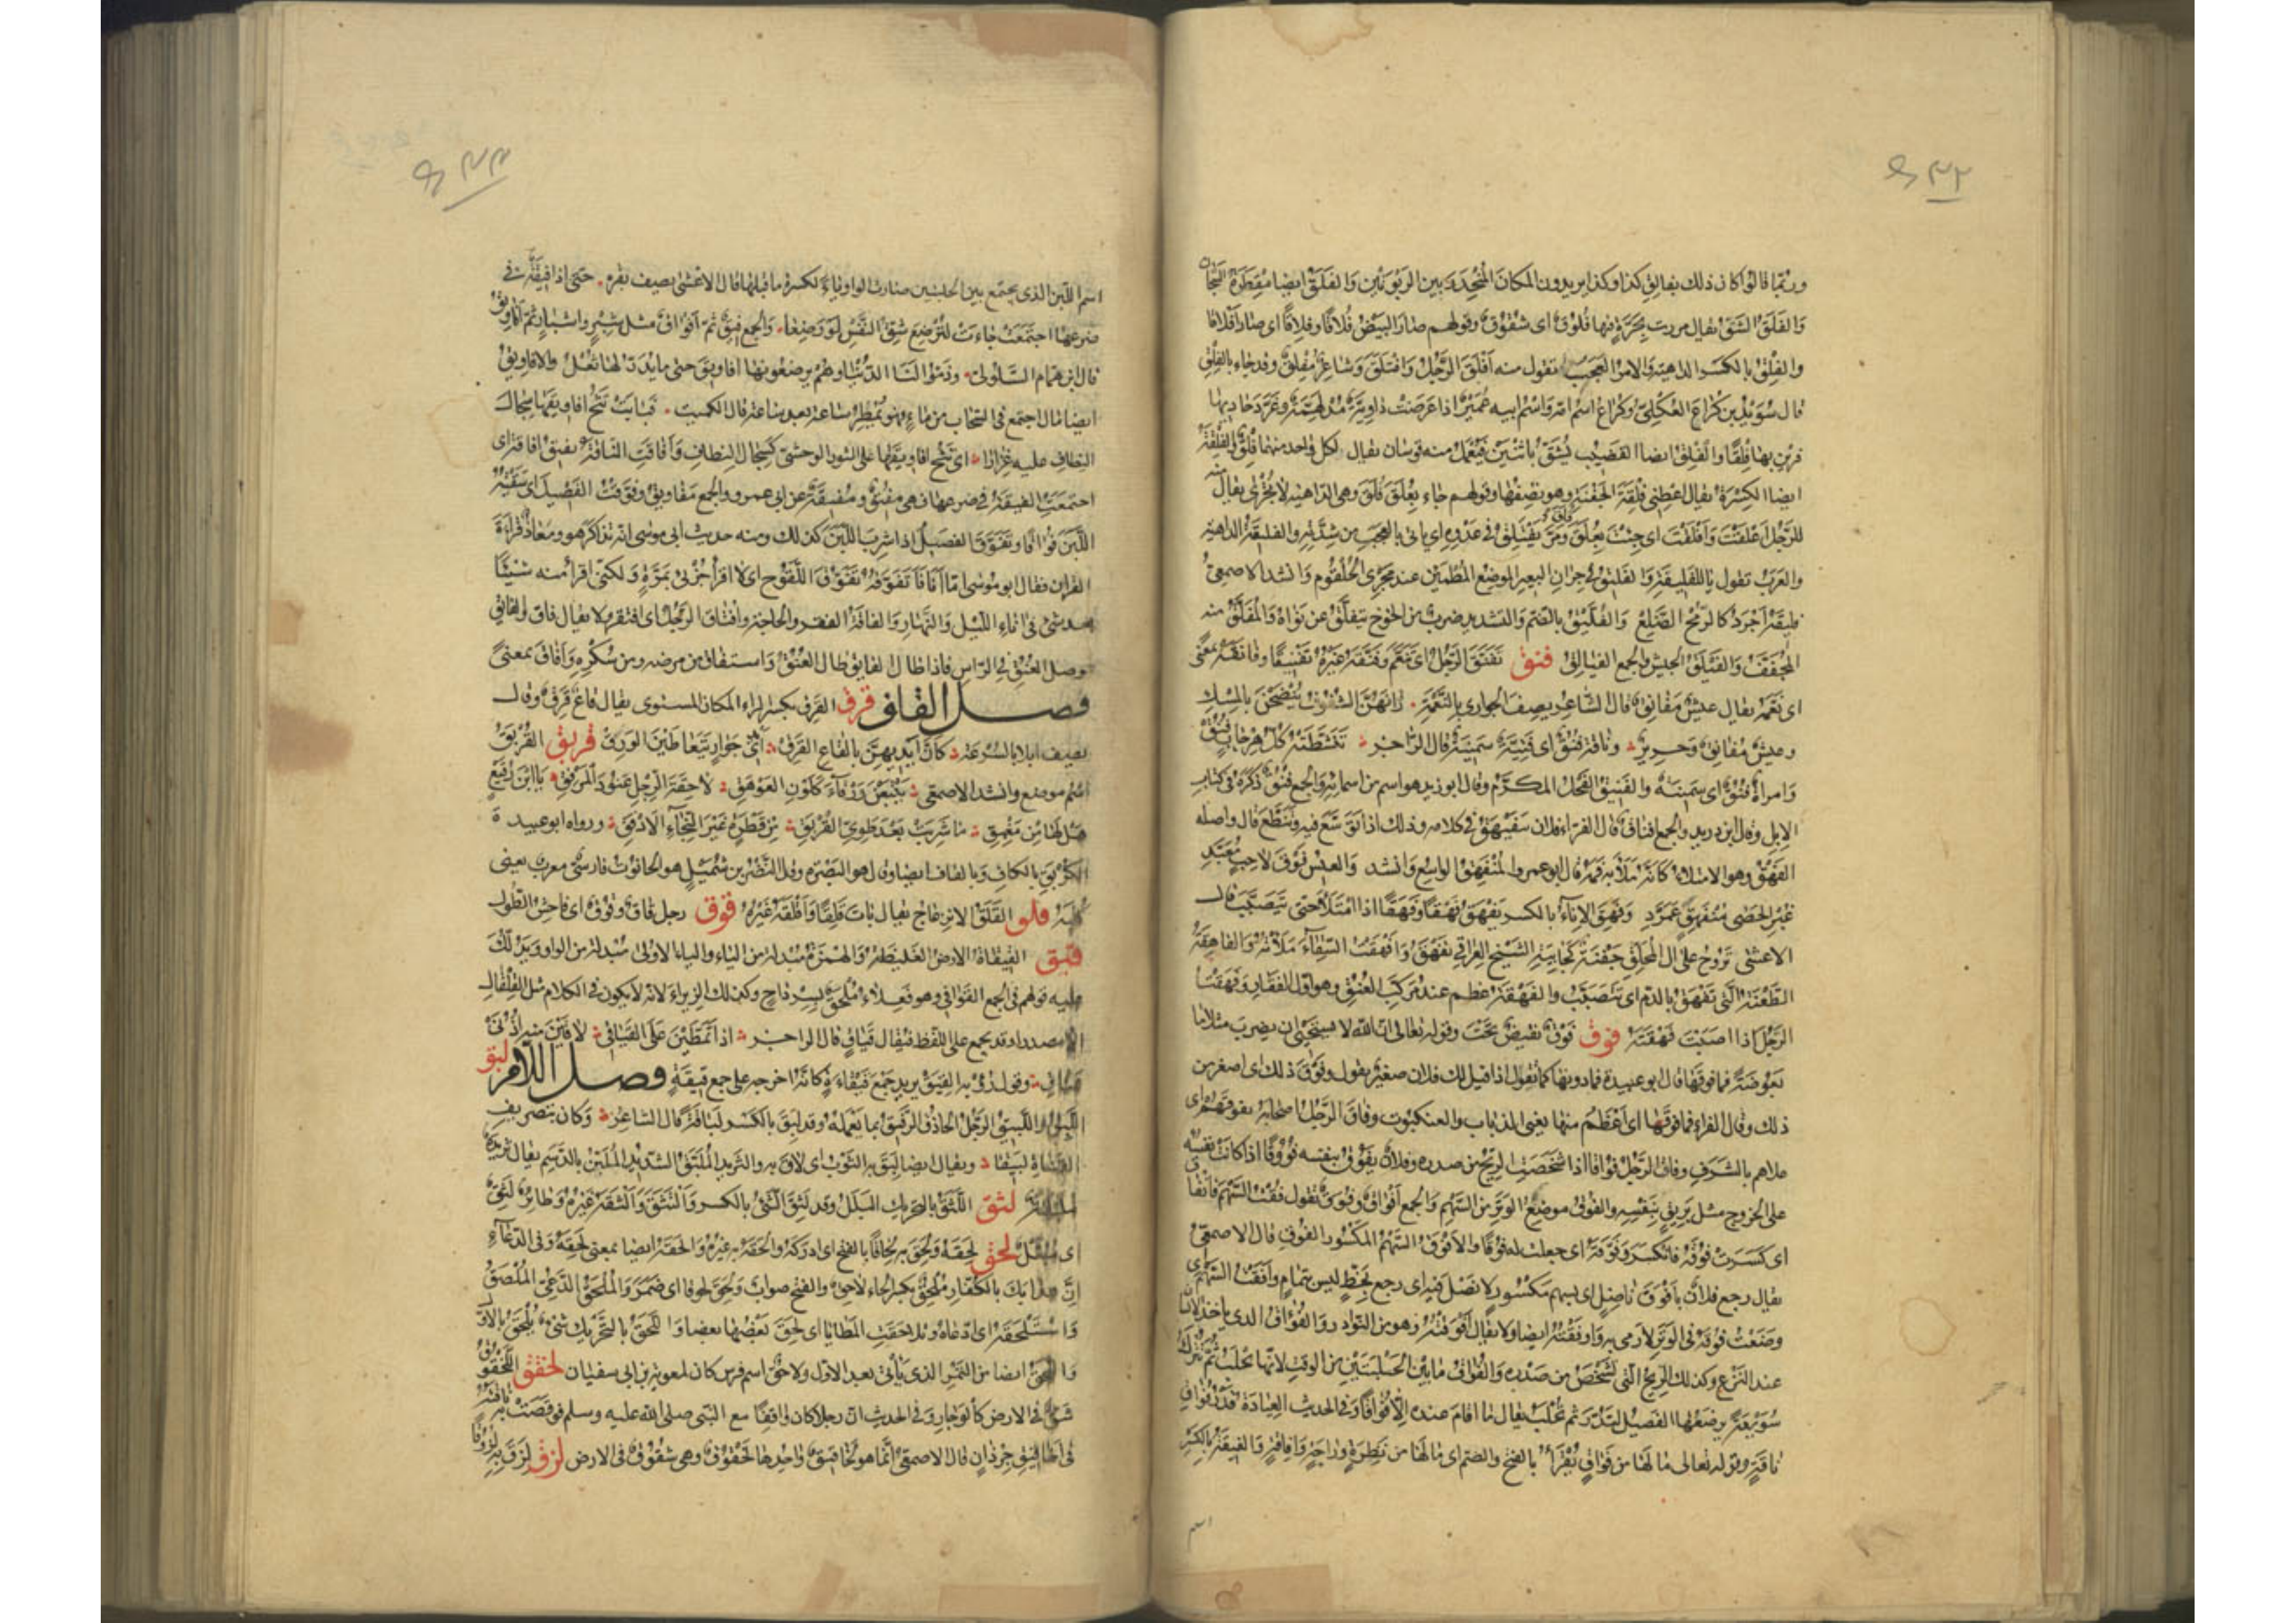 وربما قالوا كان ذلك بفالق كذا وكذا يريدون المكان المنحدر بين الربوتين والفلق ايضا مقطرة السجان
والفلق الشق يقال مررت بحرة فيها فلوق اى شقوق وقولهم صار البيض فلاقا وفلاقا اى صار افلاقا
والفلق بالكسر الداهية والامر العجب تقول منه افلق الرجل وافتلق وشاعر مفلق وقد جاء بالفلق
قال سويد بن كراع العكلى وكراع اسم امه واسم ابيه عمير اذا عرضت داوية مدلهمة وغرد حاديها
فرين بها فلقا والفلق ايضا القضيب يشق باثنين فيعمل منه قوسان يقال لكل واحد منهما فلق والفلقة
ايضا الكسرة يقال اعطنى فلقة الجفنة وهو نصفها وقولهم جاء بعلق فلق وهى الداهية لا يجرى يقال منه
للرجل اعلقت وافلقت اى جئت بعلق فلق ومر يفتلق فى عدوه اى ياتى بالعجب من شدته والفليقة الداهية
والعرب تقول يا للفليقة والفليق فى جران البعير الموضع المطمئن عند مجرى الحلقوم وانشد الاصمعى
فليقه اجرد كالرمح الضلع والفليق بالضم والتشديد ضرب من الخوخ يتفلق عن نواه والمفلق منه
المجفف والفيلق الجيش والجمع الفيالق فنق تفنق الرجل اى تنعم وفنقه غيره تفنيقا وفانقه بمعنى
اى نعمه يقال عيش مفانق قال الشاعر يصف الجوارى بالنعمة زانهن الشفوف ينضحن بالمسك
وعيش مفانق وحرير وناقة فنق اى فتية سمينة قال الراجز تنشطته كل هرجاب فنق
وامراة فنق اى سمينة والفنيق الفحل المكرم وقال ابو زيد هو اسم من اسمائه والجمع فنق ذكره فى كتاب
الابل وقال ابن دريد والجمع افناق قال الفراء فلان يتفيهق فى كلامه وذلك اذا توسع فيه وتنطع قال واصله
الفهق وهو الامتلاء كانه ملأ به فمه قال ابو عمرو المنفهق الواسع وانشد والعيس فوق لاحب معبد
غبر الحصى منفهق عمرد وفهق الاناء بالكسر يفهق فهقا وفهقا اذا امتلأ حتى يتصبب قال
الاعشى تروح على ال المحلق جفنة كجابية الشيخ العراقى تفهق وافهقت السقاء ملأته والفاهقة
الطعنة التى تفهق بالدم اى تتصبب والفهقة عظم عند مركب العنق وهو اول الفقار وفهقت
الرجل اذا اصبت فهقته فوق فوق نقيض تحت وقوله تعالى ان الله لا يستحيى ان يضرب مثلا ما
بعوضة فما فوقها قال ابو عبيدة فما دونها كما تقول اذا قيل لك فلان صغير تقول وفوق ذلك اى اصغر من
ذلك وقال الفراء فما فوقها اى اعظم منها يعنى الذباب والعنكبوت وفاق الرجل اصحابه يفوقهم اى
علاهم بالشرف وفاق الرجل فواقا اذا شخصت الريح من صدره وفلان يفوق بنفسه فؤوقا اذا كانت نفسه
على الخروج مثل يريق بنفسه والفوق موضع الوتر من السهم والجمع افواق وفوق تقول فقت السهم فانفاق
اى كسرت فوقه فانكسر وفوقته اى جعلت له فوقا والافوق السهم المكسور الفوق قال الاصمعى
يقال رجع فلان بافوق ناصل اى بسهم مكسور لا نصل فيه اى رجع بحظ ليس بتمام وافقت السهم اى
وضعت فوقه فى الوتر لارمى به واوفقته ايضا ولا يقال افوقته وهو من النوادر والفواق الذى ياخذ الانسان
عند النزع وكذلك الريح التى تشخص من صدره والفواق ما بين الحلبتين من الوقت لانها تحلب ثم تترك
سويعة يرضعها الفصيل لتدر ثم تحلب يقال ما اقام عنده الا فواقا وفى الحديث العيادة قدر فواق
ناقة وقوله تعالى ما لها من فواق يقرأ بالفتح والضم اى ما لها من نظرة وراحة وافاقة والفيقة بالكسر
اسم
اسم اللبن الذى يجتمع بين الحلبتين صارت الواو ياء لكسرة ما قبلها قال الاعشى يصف بقرة حتى اذا فيقة فى
ضرعها اجتمعت جاءت لترضع شق النفس لو رضعا والجمع فيق ثم افواق مثل شبر واشبار ثم افاويق
قال ابن همام السلولى وذموا لنا الدنيا وهم يرضعونها افاويق حتى ما يدر لها ثعل والافاويق
ايضا ما اجتمع فى السحاب من ماء وهو يمطر ساعة بعد ساعة قال الكميت فباتت تثج افاويقها سجال
النطاف عليه غزارا اى تثج افاويقها على الثور الوحشى كسجال النطاف وافاقت الناقة تفيق افاقة اى
اجتمعت الفيقة فى ضرعها فهى مفيق ومفيقة عن ابى عمرو والجمع مفاويق وفوقت الفصيل اى سقيته
اللبن فواقا وتفوق الفصيل اذا شرب اللبن كذلك ومنه حديث ابى موسى انه تذاكر هو ومعاذ قراءة
القران فقال ابو موسى اما انا فاتفوقه تفوق اللقوح اى لا اقرأ جزئى بمرة ولكنى اقرأ منه شيئا
بعد شى فى اناء الليل والنهار والفاقة الفقر والحاجة وافتاق الرجل اى افتقر ولا يقال فاق والفائق
موصل العنق فى الراس فاذا طال الفايق طال العنق واستفاق من مرضه ومن سكره وافاق بمعنى
فصل القاف قرق القرق بكسر الراء المكان المستوى يقال قاع قرق وقال
يصف ابلا بالسرعة كان ايديهن بالقاع القرق ايدى جوار يتعاطين الورق قربق القربق
اسم موضع وانشد الاصمعى يتبعن ورقاء كلون العوهق لاحقة الرجل عنود المرفق يا ابن رقيع
هل لها من مغبق ما شربت بعد طوى القربق من قطرة غير النجاء الادفق ورواه ابو عبيدة
الكربق بالكاف وبالقاف ايضا وقال هو البصرة وقال النضر بن شميل هو الحانوت فارسى معرب يعنى
كلبه قلق القلق الانزعاج يقال بات قلقا واقلقه غيره قوق رجل قاق وقوق اى فاحش الطول
قيق القيقاة الارض الغليظة والهمزة مبدلة من الياء والياء الاولى مبدلة من الواو ويدلك
عليه قولهم فى الجمع القواقى وهو فعلاء ملحق بسرداح وكذلك الزيزاء لانه لا يكون فى الكلام مثل القلقال
الا مصدرا وقد يجمع على اللفظ فيقال قياق قال الراجز اذا تمطين على القياقى لاقين منه اذنى
عناق وقوله يريد جمع قيقاءة كانه اخرجه على جمع قيقة فصل اللام لبق
اللبق واللبيق الرجل الحاذق الرفيق بما يعمله وقد لبق بالكسر لباقة قال الشاعر وكان بتصريف
القناة لبيقا ويقال ايضا لبق به الثوب اى لاق به والثريد الملبق الشديد الملين بالدسم يقال ثريدة
ملبقة لثق اللثق بالتحريك البلل وقد لثق الشى بالكسر والتثق والثقه غيره وطائر لثق
اى مبتل لحق لحقه ولحق به لحاقا بالفتح اى ادركه والحقه به غيره والحقه ايضا بمعنى لحقه وفى الدعاء
ان عذابك بالكفار ملحق بكسر الحاء لاحق والفتح صواب ولحق لحوقا اى ضمر والملحق الدعى الملصق
واستلحقه اى ادعاه وتلاحقت المطايا اى لحق بعضها بعضا واللحق بالتحريك شى يلحق بالاول
واللحق ايضا من التمر الذى ياتى بعد الاول ولاحق اسم فرس كان لمعوية بن ابى سفيان لخقق اللخقوق
شق فى الارض كالوجار وفى الحديث ان رجلا كان واقفا مع النبى صلى الله عليه وسلم فوقصت به ناقته
فى اخاقيق جرذان قال الاصمعى انما هو لخاقيق واحدها لخقوق وهى شقوق فى الارض لزق لزق به لزوقا